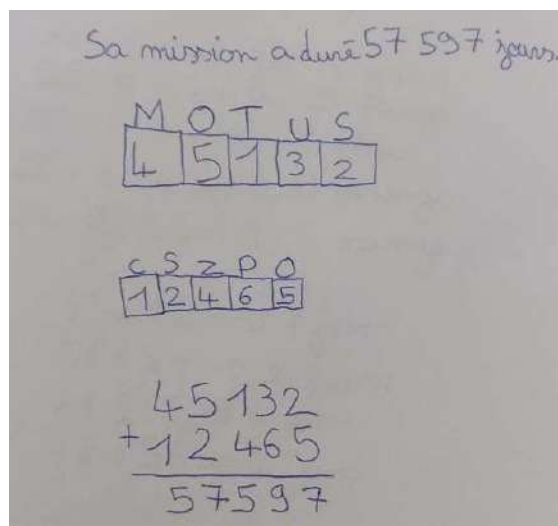 Sa mission a duré 57 597 jours.
M O T U S
4 5 1 3 2
C S Z P O
1 2 4 6 5
45132
+12465
57597